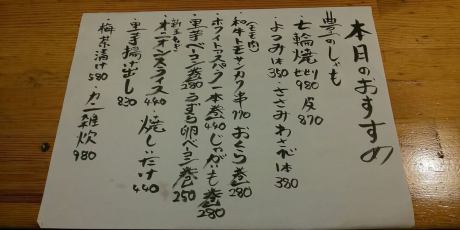 本日のおすすめ
豊のしゃも
・七輪焼 もも980 皮870
・よつみ1本350 ・ささみわさび1本380
(もも肉)
・和牛トモサンカク串770 おくら巻280
・ホワイトアスパラ一本巻440 じゃがいも巻280
・里芋ベーコン巻280 うずら卵ベーコン巻250
新玉ねぎ
・オニオンスライス440 焼しいたけ440
・里芋揚げ出し830
・梅茶漬け580 ・カニ雑炊980